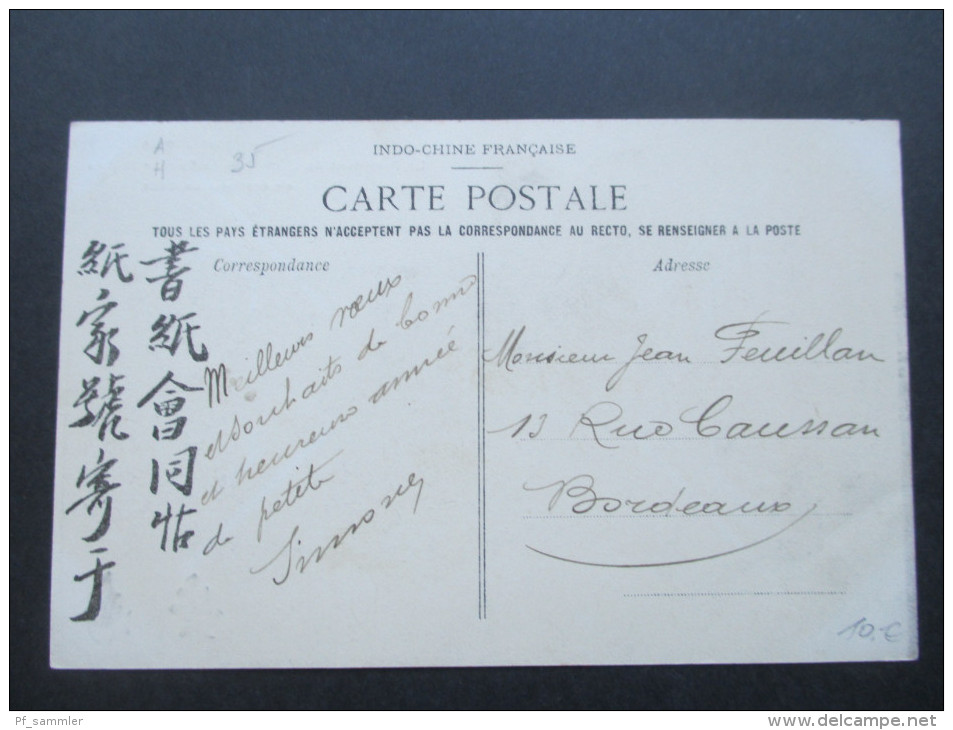 A
H
35
INDO-CHINE FRANÇAISE
CARTE POSTALE
TOUS LES PAYS ÉTRANGERS N'ACCEPTENT PAS LA CORRESPONDANCE AU RECTO, SE RENSEIGNER A LA POSTE
Correspondance
書紙會同怗
紙家號寄于
Meilleurs vœux
et souhaits de bonne
et heureuse année
de petite
Simone
Adresse
Monsieur Jean Feuillan
13 Rue Caussan
Bordeaux
10.€
Pf_sammler
www.delcampe.net